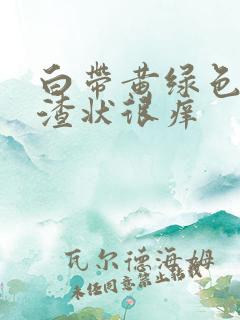 白带黄绿色
渣状很痒
瓦尔德海姆
未经同意禁止转载